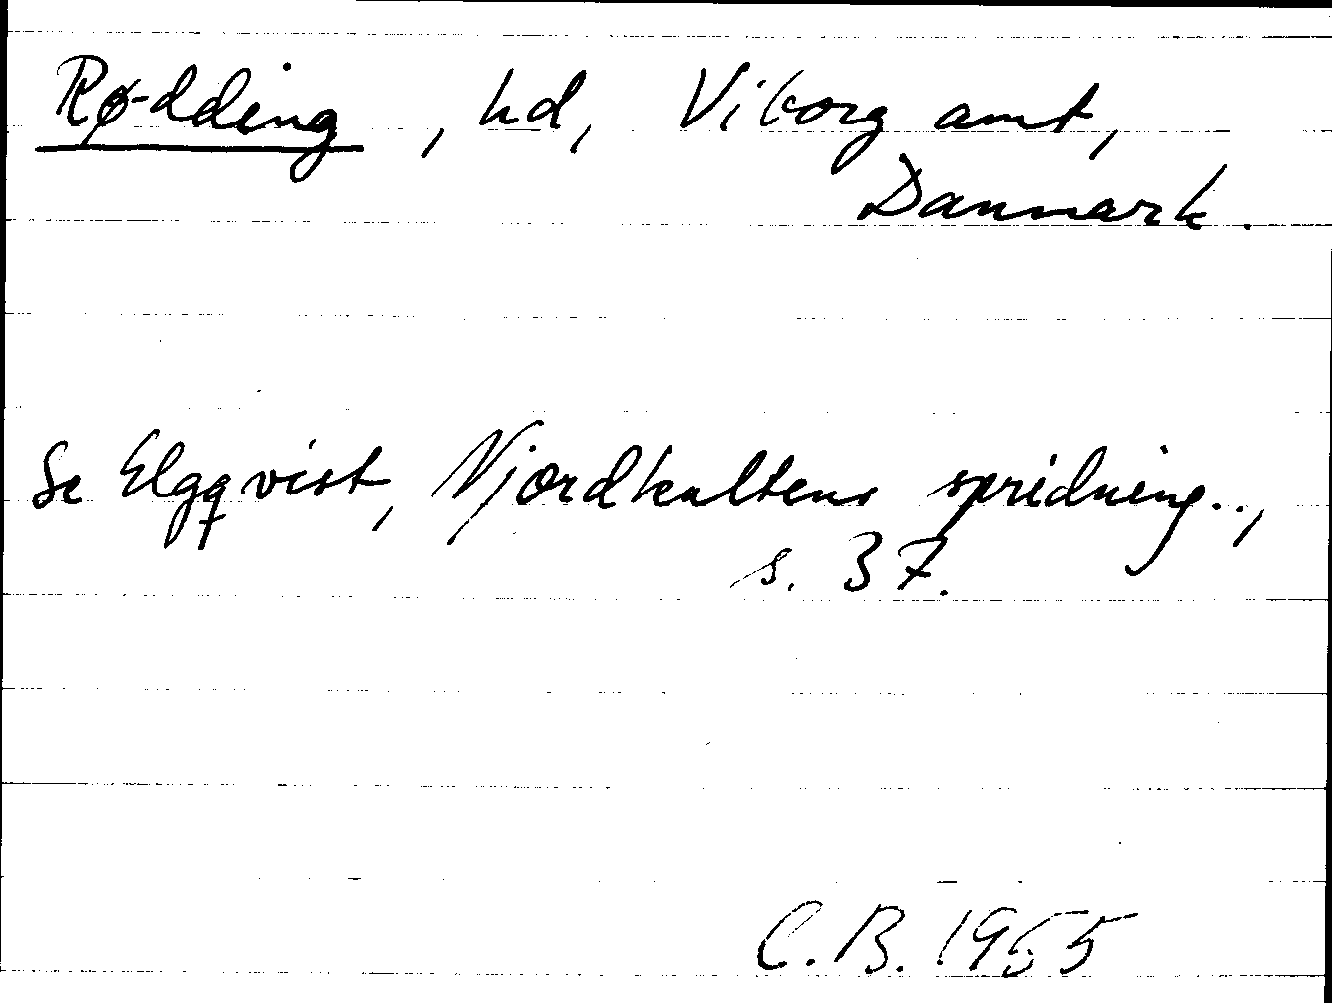 Rødding, hd, Viborg amt,
Danmark.
Se Elgqvist, Njordkultens spridning..,
s. 37.
C.B. 1955